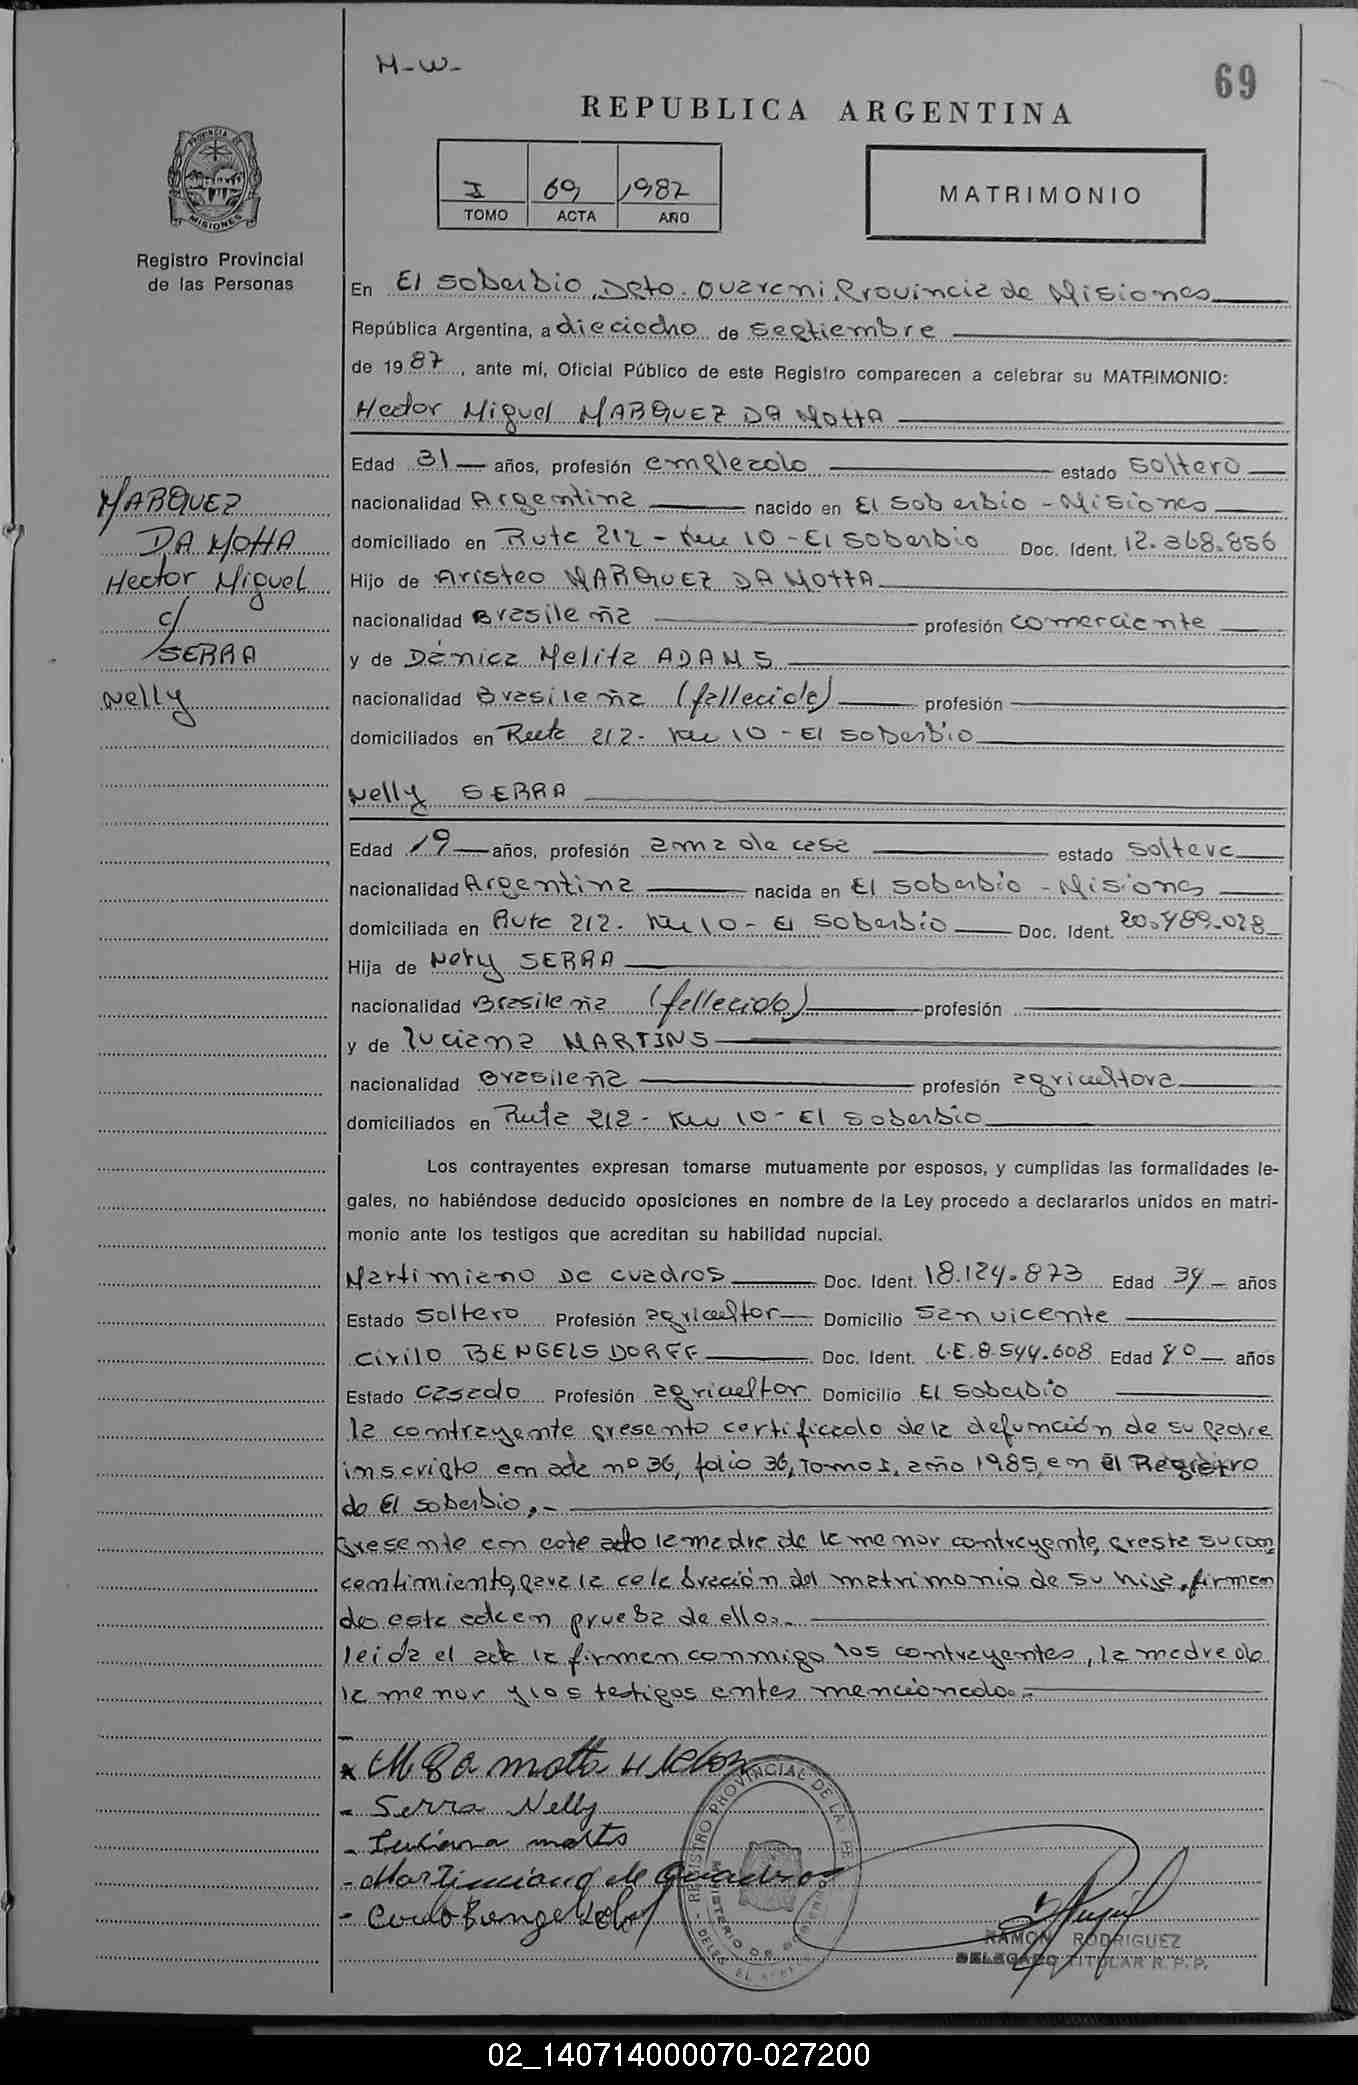 M-W-
69
REPUBLICA ARGENTINA
I 69 1987
TOMO ACTA AÑO
MATRIMONIO
PROVINCIA DE
MISIONES
Registro Provincial
de las Personas
En El Soberbio, Dpto. Guarani, Provincia de Misiones
República Argentina, a dieciocho de septiembre
de 1987, ante mí, Oficial Público de este Registro comparecen a celebrar su MATRIMONIO:
Hector Miguel MARQUEZ DA MOTTA
Edad 31 años, profesión empleado estado soltero
nacionalidad Argentina nacido en El Soberbio - Misiones
domiciliado en Ruta 212 - Km 10 - El Soberbio Doc. Ident. 12.368.856
Hijo de Aristeo MARQUEZ DA MOTTA
nacionalidad Brasileña profesión comerciante
y de Dánica Melita ADAMS
nacionalidad Brasileña (fallecida) profesión
domiciliados en Ruta 212 - Km 10 - El Soberbio
MARQUEZ
DA MOTTA
Hector Miguel
c/
SERRA
Nelly
Nelly SERRA
Edad 19 años, profesión ama de casa estado soltera
nacionalidad Argentina nacida en El Soberbio - Misiones
domiciliada en Ruta 212. Km 10 - El Soberbio Doc. Ident. 20.489.028
Hija de Nery SERRA
nacionalidad Brasileña (fallecido) profesión
y de Luciana MARTINS
nacionalidad Brasileña profesión agricultora
domiciliados en Ruta 212 - Km 10 - El Soberbio
Los contrayentes expresan tomarse mutuamente por esposos, y cumplidas las formalidades le-
gales, no habiéndose deducido oposiciones en nombre de la Ley procedo a declararlos unidos en matri-
monio ante los testigos que acreditan su habilidad nupcial.
Martimiano De cuadros Doc. Ident. 18.124.873 Edad 34 años
Estado soltero Profesión agricultor Domicilio San vicente
Cirilo BENGELSDORFF Doc. Ident. L.E. 8.544.608 Edad 40 años
Estado casado Profesión agricultor Domicilio El Soberbio
la contrayente presento certificado de la defunción de su padre
inscripto en acta nº 36, folio 36, Tomo I, año 1985, en el Registro
de El Soberbio.-
Presente en este acto la madre de la menor contrayente, presta su con
centimiento, para la celebración del matrimonio de su hija, firman
do esta acta en prueba de ello.-
leida el acta la firman conmigo los contrayentes, la madre de
la menor y los testigos antes mencionados.-
- Serra Nelly
- Martimiano de Quadros
REGISTRO PROVINCIAL DE LA
RAMON RODRIGUEZ
DELEGADO TITULAR R. P. P.
02_140714000070-027200